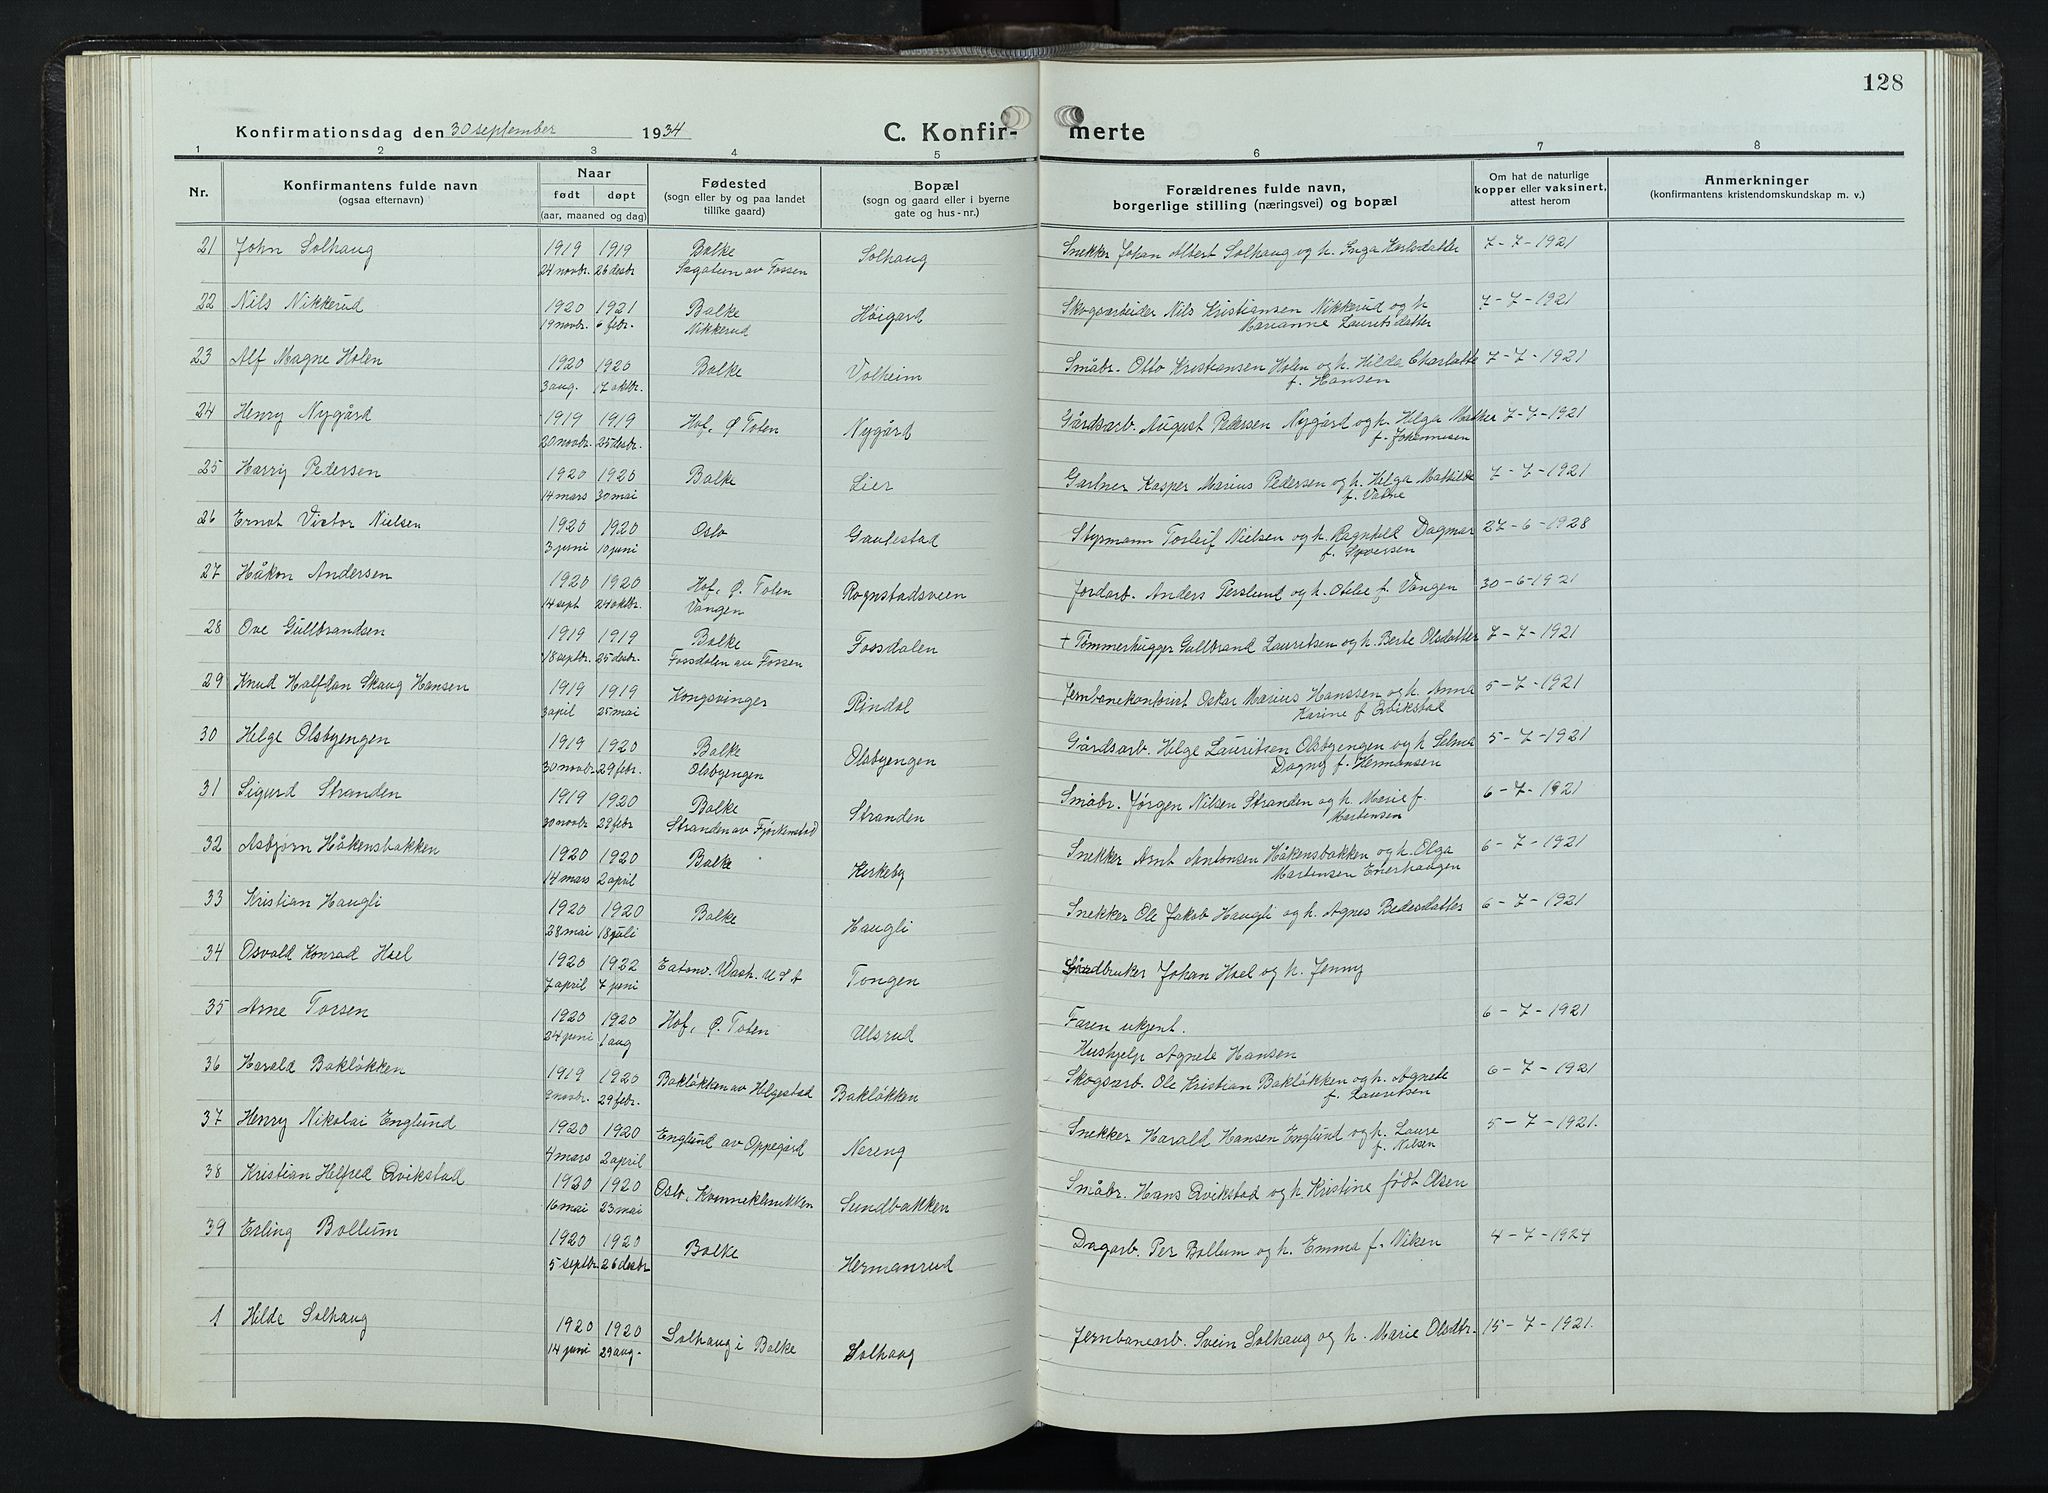 128
Konfirmationsdag den 30 september 1934 C. Konfir- merte
1 2 3 4 5 6 7 8
Nr. Konfirmantens fulde navn (ogsaa efternavn) Naar født døpt (aar, maaned og dag) Fødested (sogn eller by og paa landet tillike gaard) Bopæl (sogn og gaard eller i byerne gate og hus-nr.) Forældrenes fulde navn, borgerlige stilling (næringsvei) og bopæl Om hat de naturlige kopper eller vaksinert, attest herom Anmerkninger (konfirmantens kristendomskundskap m. v.)
21 John Solhaug 1919 1919 Balke Solhaug Snekker Johan Albert Solhaug og h. Inga Karlsdatter 7-7-1921
24 novbr. 26 desbr. av Fossen
22 Nils Nikkerud 1920 1921 Balke Høigard Skogsarbeider Nils Kristiansen Nikkerud og h. 7-7-1921
19 novbr. 6 febr. Nikkerud Marianne Lauritsdatter
23 Alf Magne Holen 1920 1920 Balke Volheim Småbr. Otto Kristiansen Holen og h. Hilda Charlotte 7-7-1921
3 aug. 17 oktbr. f. Hansen
24 Henry Nygård 1919 1919 Hof, Ø. Toten Nygård Gårdsarb. August Pedersen Nygård og h. Helga 7-7-1921
20 novbr. 25 desbr. f. Johannesen
25 Harry Pedersen 1920 1920 Balke Lier Gartner Kasper Marius Pedersen og h. Helga Mathilde 7-7-1921
14 mars 30 mai f.
26 Ernst Victor Nielsen 1920 1920 Oslo Gaulestad Styrmann Torleif Nielsen og h. Ragnhild Dagmar 27-6-1928
3 juni 10 juni f. Syversen
27 Håkon Andersen 1920 1920 Hof, Ø. Toten Rognstadsveen Jordarb. Anders Perslund og h. Otelie f. Vangen 30-6-1921
14 sept 24 oktbr. Vangen
28 Ove Gullbrandsen 1919 1919 Balke Fossdalen + Tømmerhugger Gullbrand Lauritsen og h. Berte Olsdatter 7-7-1921
18 septbr. 25 desbr. Fossdalen av Fossen
29 Knud Halfdan Skaug Hansen 1919 1919 Kongsvinger Rindal Jernbanekontorist Oskar Marius Hanssen og h. Anna 5-7-1921
3 april 25 mai Karine f. Qvikstad
30 Helge Olsbyengen 1919 1920 Balke Olsbyengen Gårdsarb. Helge Lauritsen Olsbyengen og h. Selma 5-7-1921
30 novbr. 29 febr. Olsbyengen Dagny f. Hermansen
31 Sigurd Stranden 1919 1920 Balke Stranden Småbr. Jørgen Nilsen Stranden og h. Marie f. 6-7-1921
30 novbr. 29 febr Stranden av Fjørkenstad Martensen
32 Asbjørn Håkensbakken 1920 1920 Balke Kirkeby Snekker Arnt Antonsen Håkensbakken og h. Olga 6-7-1921
14 mars 2 april Martensen Enerhaugen
33 Kristian Haugli 1920 1920 Balke Haugli Snekker Ole Jakob Haugli og h. Agnes Pedersdatter 6-7-1921
28 mai 18 juli
34 Osvald Konrad Hoel 1920 1922 Eatonv. Wash. U S A Tongen Gårdbruker Johan Hoel og h. Jenny
7 april 7 juni
35 Arne Torsen 1920 1920 Hof, Ø. Toten Ulsrud Faren ukjent. 6-7-1921
24 juni 1 aug Hushjelp Agnete Hansen
36 Harald Bakløkken 1919 1920 Bakløkken av Helgestad Bakløkken Skogsarb. Ole Kristian Bakløkken og h. Agnete 6-7-1921
9 novbr. 29 febr. f. Lauritsen
37 Henry Nikolai Englund 1920 1920 Englund av Oppegård Nereng Snekker Harald Hansen Englund og h. Laura 5-7-1921.
4 mars 2 april f. Nilsen
38 Kristian Helfred Qvikstad 1920 1920 Oslo, Kvinneklinikken Sundbakken Småbr. Hans Qvikstad og h. Kristine født Olsen
16 mai 23 mai
39 Erling Bollum 1920 1920 Balke Hermanrud Dagarb. Per Bollum og h. Emma f. Viken 4-7-1924
5 septbr. 26 desbr
1 Hilda Solhaug 1920 1920 Solhaug i Balke Solhaug Jernbanearb. Svein Solhaug og h. Marie Olsdtr. 15-7-1921.
14 juni 29 aug.